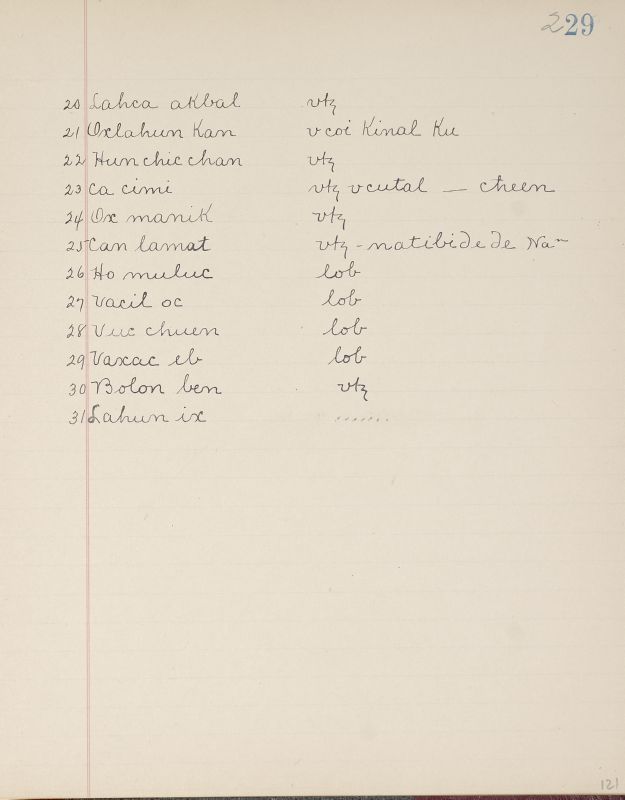 229
20 Lahca akbal vtz
21 Oxlahun Kan v coi Kinal Ku
22 Hun chic chan vtz
23 Ca cimi vtz v cutal — cheen
24 Ox manik vtz
25 Can lamat vtz - natibide de Na
26 Ho muluc lob
27 Vacil oc lob
28 Vuc chuen lob
29 Vaxac eb lob
30 Bolon ben vtz
31 Lahun ix .......
121